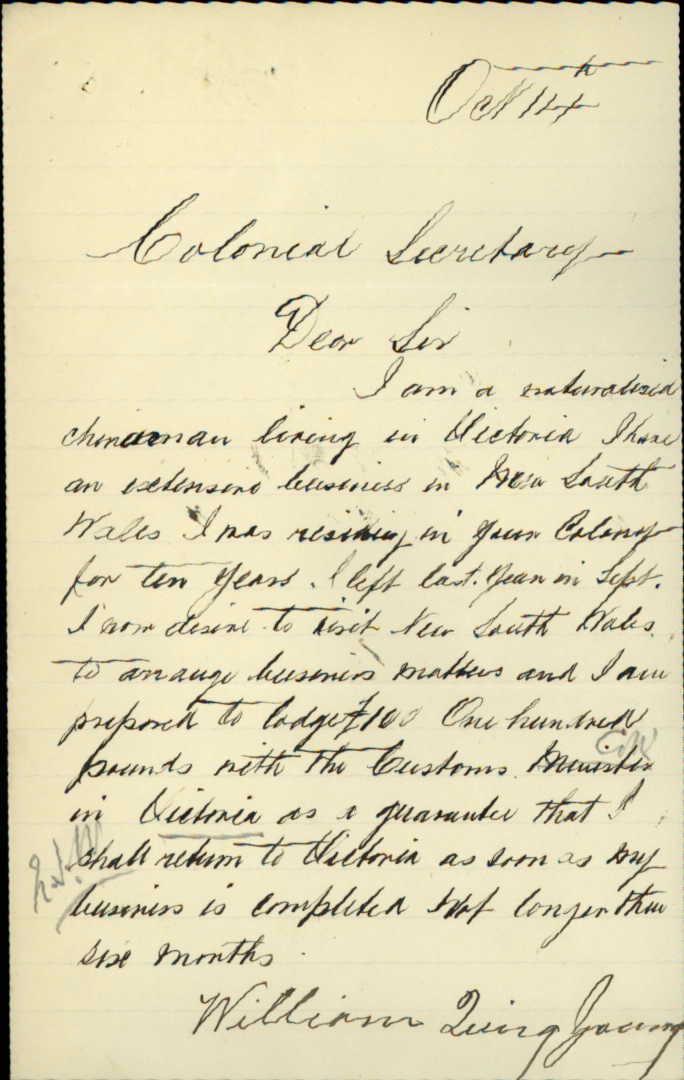 Oct 14th
Colonial Secretary
Dear Sir
I am a naturalised
chinaman living in Victoria I have
an extensive business in New South
Wales I was residing in your Colony
for ten years. I left last year in Sept.
I now desire to visit New South Wales
to arrange business matters and I am
prepared to lodge £100 One hundred
pounds with the Customs Minister
in Victoria as a guarantee that I
shall return to Victoria as soon as my
business is completed Not longer than
six months.
William Quing Young